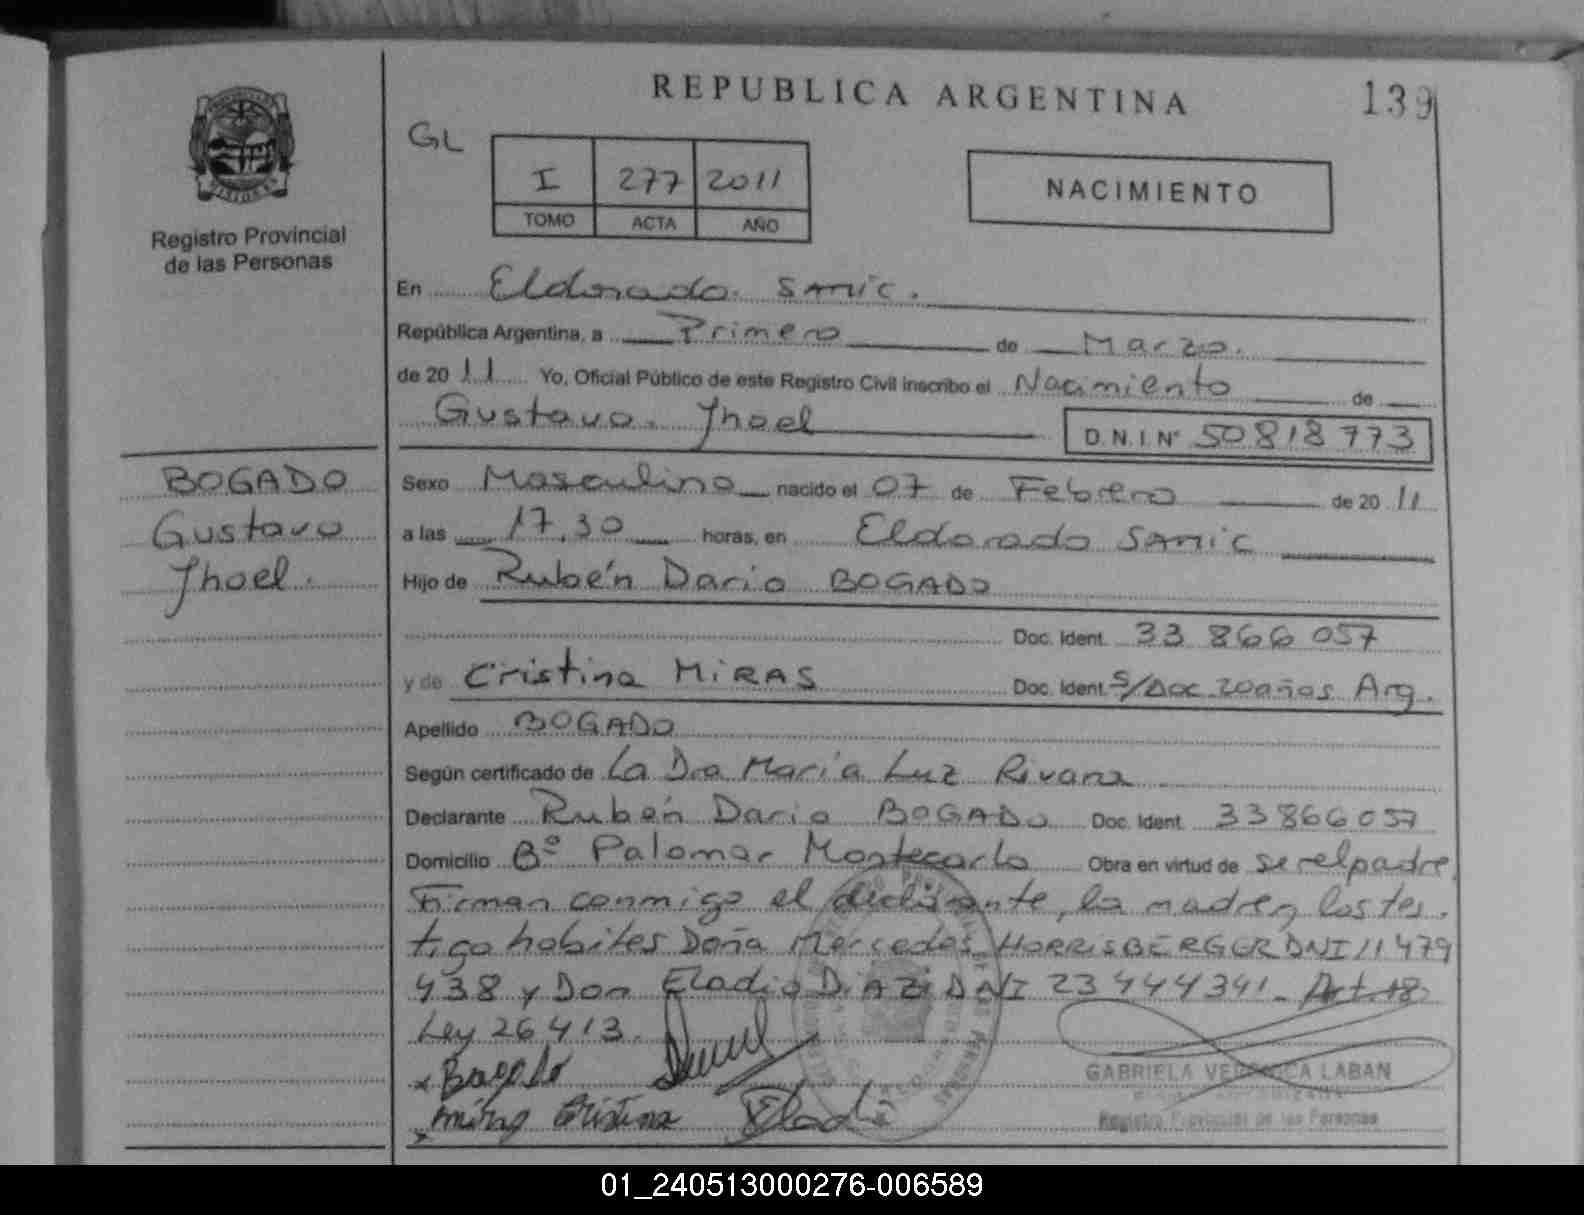 REPUBLICA ARGENTINA
139
GL
I 277 2011
TOMO ACTA AÑO
NACIMIENTO
Registro Provincial
de las Personas
En Eldorado. SAMIC.
República Argentina, a Primero de Marzo.
de 2011 Yo, Oficial Público de este Registro Civil inscribo el Nacimiento de
Gustavo. Jhoel D.N.I. Nº 50818773
BOGADO
Gustavo
Jhoel.
Sexo Masculino nacido el 07 de Febrero de 2011
a las 17.30 horas, en Eldorado SAMIC
Hijo de Rubén Dario BOGADO
Doc. Ident. 33 866 057
y de Cristina MIRAS Doc. Ident. S/Doc 20 años Arg.
Apellido BOGADO
Según certificado de La Dra Maria Luz
Declarante Rubén Dario BOGADO Doc. Ident. 33866057
Domicilio Bº Palomar Montecarlo Obra en virtud de ser el padre.
Firman conmigo el declarante, la madre y los tes.
tigo habiles Doña Mercedes HORRISBERGER DNI 11 479
438 y Don Eladio DIAZ DNI 23 444 341. Art. 18.
Ley 26413.
x Bogado
x miras Cristina Eladi
GABRIELA VERONICA LABAN
Registro Provincial de las Personas
01_240513000276-006589